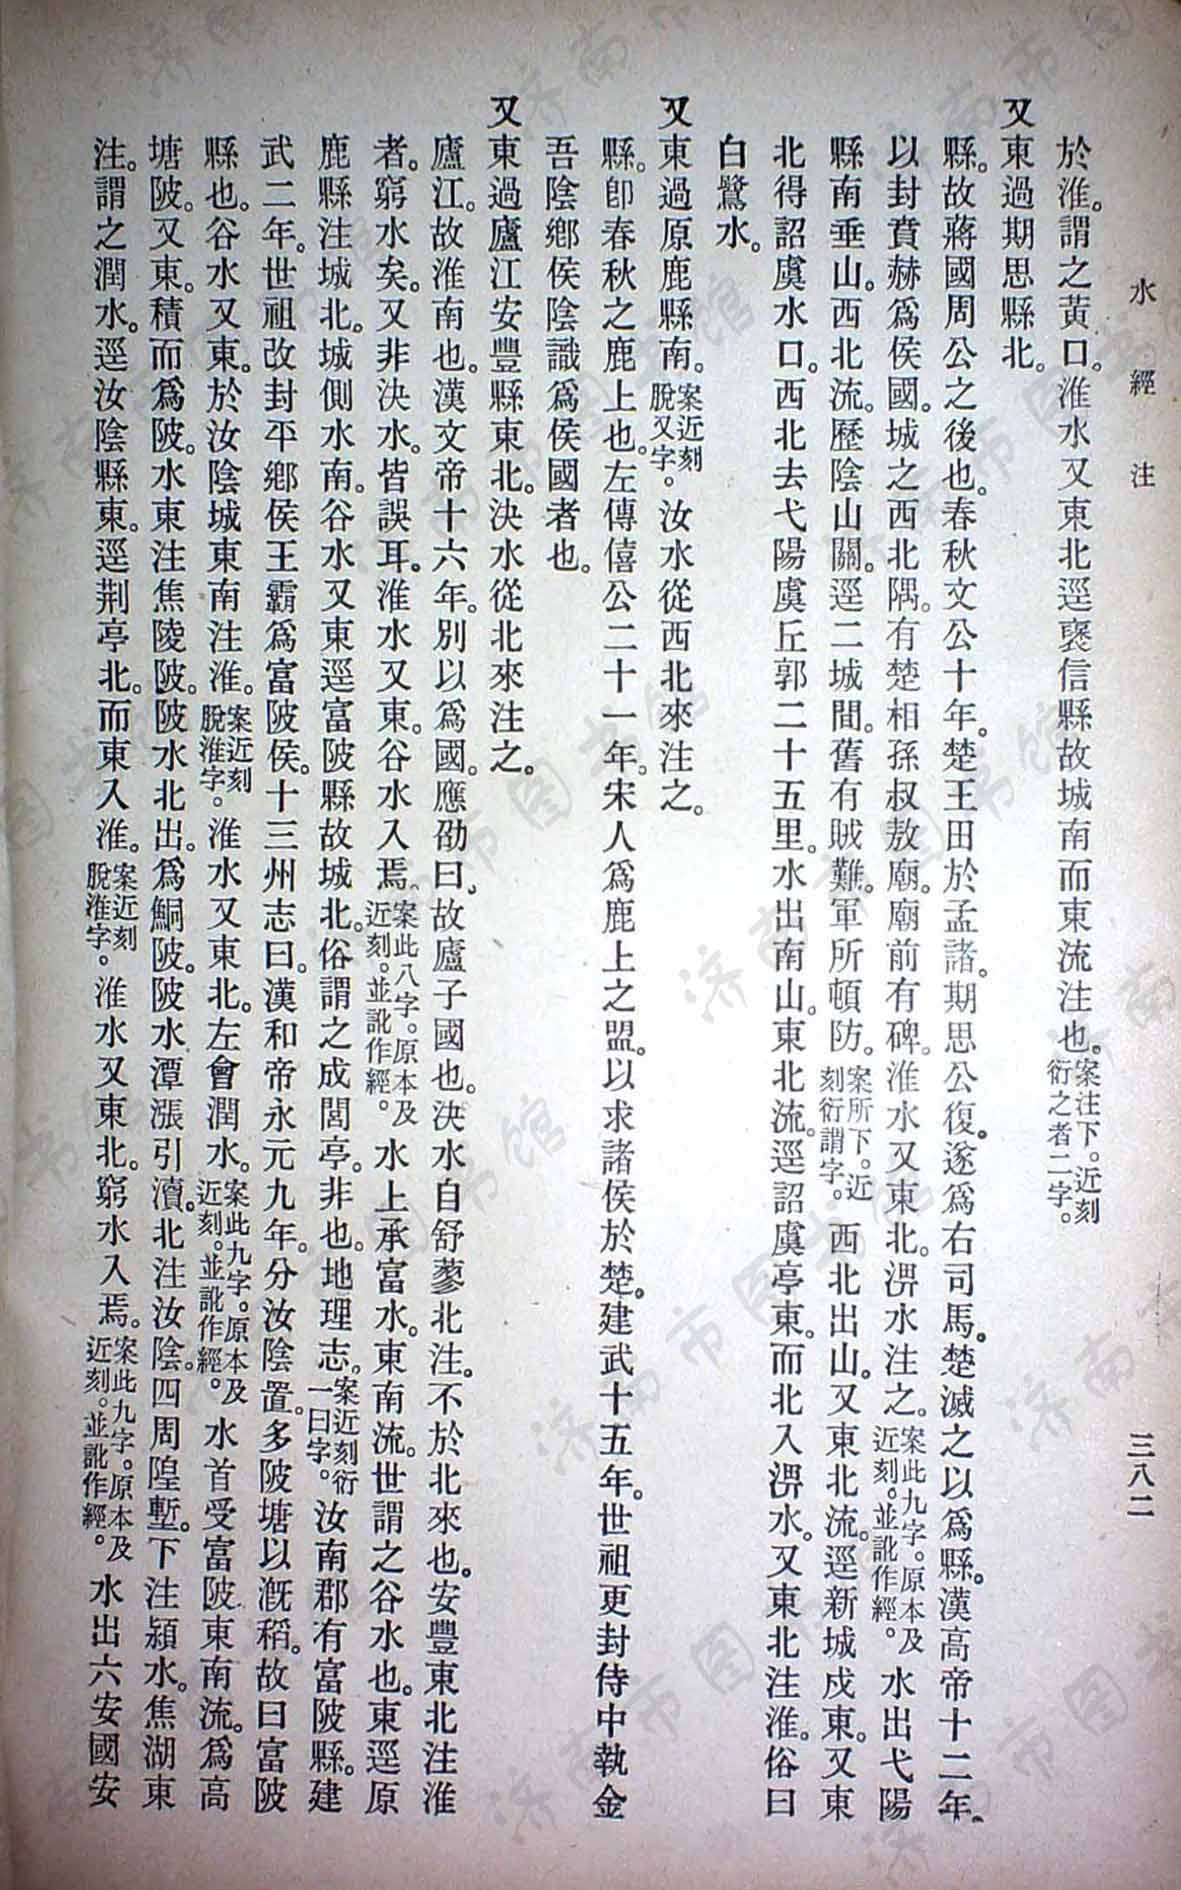 水經注
三八二
於淮。謂之黃口。淮水又東北逕褒信縣故城南而東流注也。案注下。近刻衍之者二字。
又東過期思縣北。
縣。故蔣國周公之後也。春秋文公十年。楚王田於孟諸。期思公復。遂爲右司馬。楚滅之以爲縣。漢高帝十二年。
以封賁赫爲侯國。城之西北隅。有楚相孫叔敖廟。廟前有碑。淮水又東北。淠水注之。案此九字。原本及近刻。並訛作經。水出弋陽
縣南垂山。西北流。歷陰山關。逕二城間。舊有賊難。軍所頓防。案所下。近刻衍謂字。西北出山。又東北流。逕新城戍東。又東
北得詔虞水口。西北去弋陽虞丘郭二十五里。水出南山。東北流。逕詔虞亭東。而北入淠水。又東北注淮。俗曰
白鷺水。
又東過原鹿縣南。案近刻脫又字。汝水從西北來注之。
縣。卽春秋之鹿上也。左傳僖公二十一年。宋人爲鹿上之盟。以求諸侯於楚。建武十五年。世祖更封侍中執金
吾陰鄉侯陰識爲侯國者也。
又東過廬江安豐縣東北。決水從北來注之。
廬江。故淮南也。漢文帝十六年。別以爲國。應劭曰、故廬子國也。決水自舒蓼北注。不於北來也。安豐東北注淮
者。窮水矣。又非決水。皆誤耳。淮水又東。谷水入焉。案此八字。原本及近刻。並訛作經。水上承富水。東南流。世謂之谷水也。東逕原
鹿縣注城北。城側水南。谷水又東逕富陂縣故城北。俗謂之成閭亭。非也。地理志。案近刻衍一曰字。汝南郡有富陂縣。建
武二年。世祖改封平鄉侯王霸爲富陂侯。十三州志曰。漢和帝永元九年。分汝陰置。多陂塘以溉稻。故曰富陂
縣也。谷水又東。於汝陰城東南注淮。案近刻脫淮字。淮水又東北。左會潤水。案此九字。原本及近刻。並訛作經。水首受富陂東南流。爲高
塘陂。又東。積而爲陂。水東注焦陵陂。陂水北出。爲鮦陂。陂水潭漲引瀆。北注汝陰。四周隍塹。下注潁水。焦湖東
注。謂之潤水。逕汝陰縣東。逕荆亭北。而東入淮。案近刻脫淮字。淮水又東北。窮水入焉。案此九字。原本及近刻。並訛作經。水出六安國安